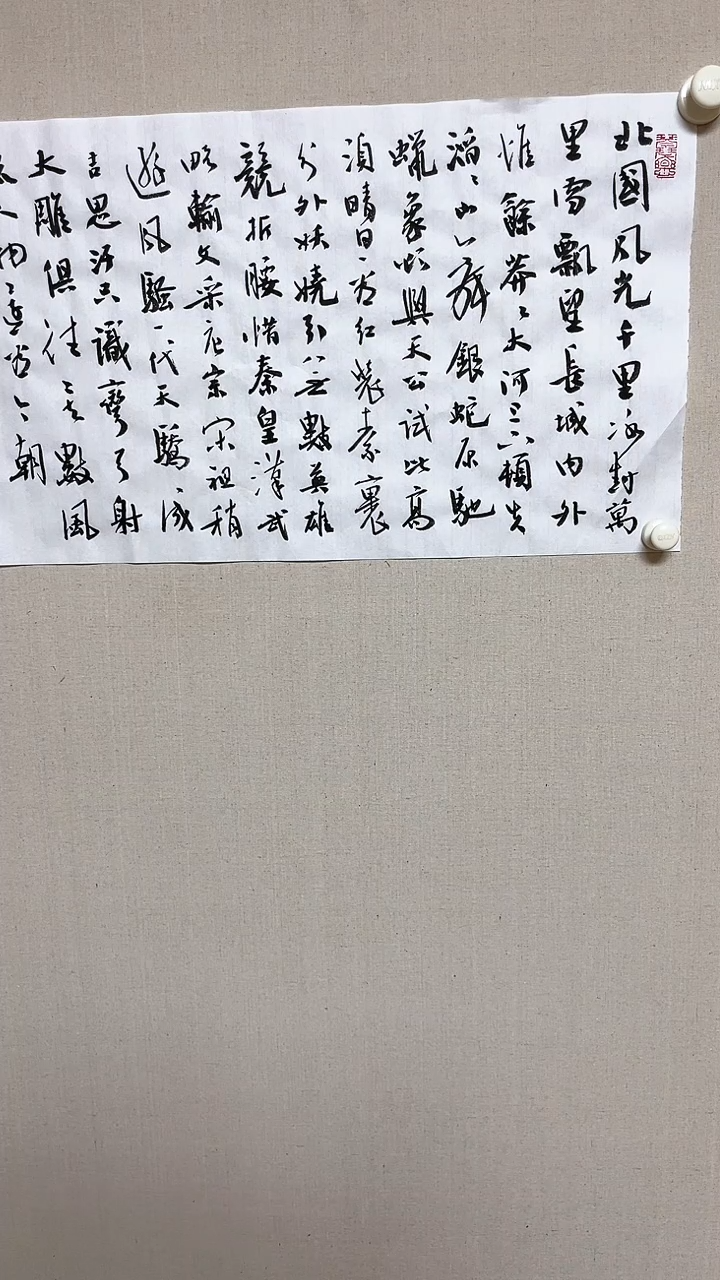 北國风光千里冰封萬
里雪飄望長城内外
惟餘莽〻大河上下頓失
滔〻山舞銀蛇原馳
蠟象欲與天公試比高
須晴日看紅裝素裹
分外妖嬈引無數英雄
競折腰惜秦皇漢武
略輸文采唐宗宋祖稍
遜风騷一代天驕成
吉思汗只識彎弓射
大雕俱往矣數風
流人物還看今朝